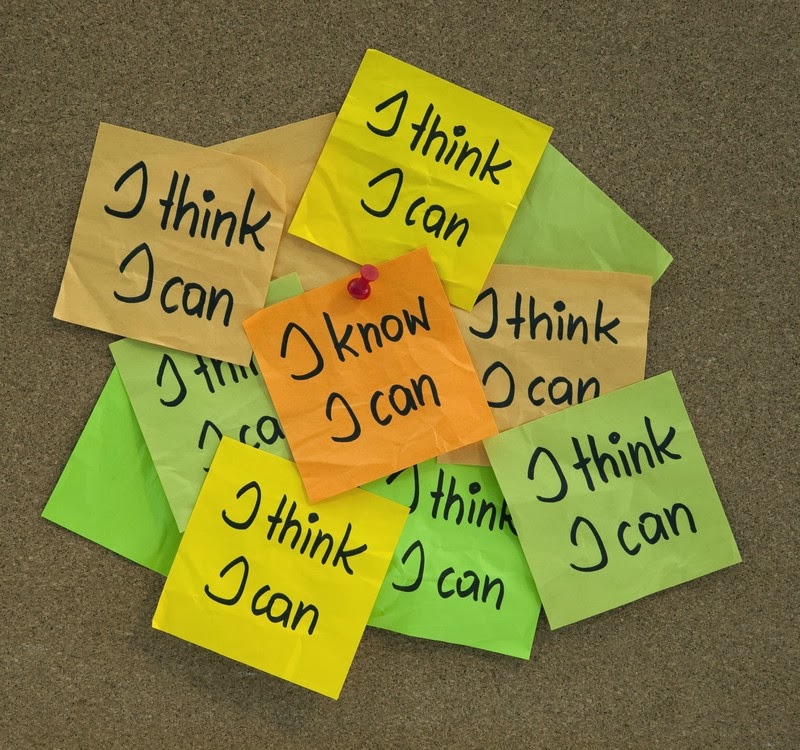 I think
I can
I think
I can
I know
I can
I think
I can
I thin
I ca
I think
I can
I think
I can
I think
I can